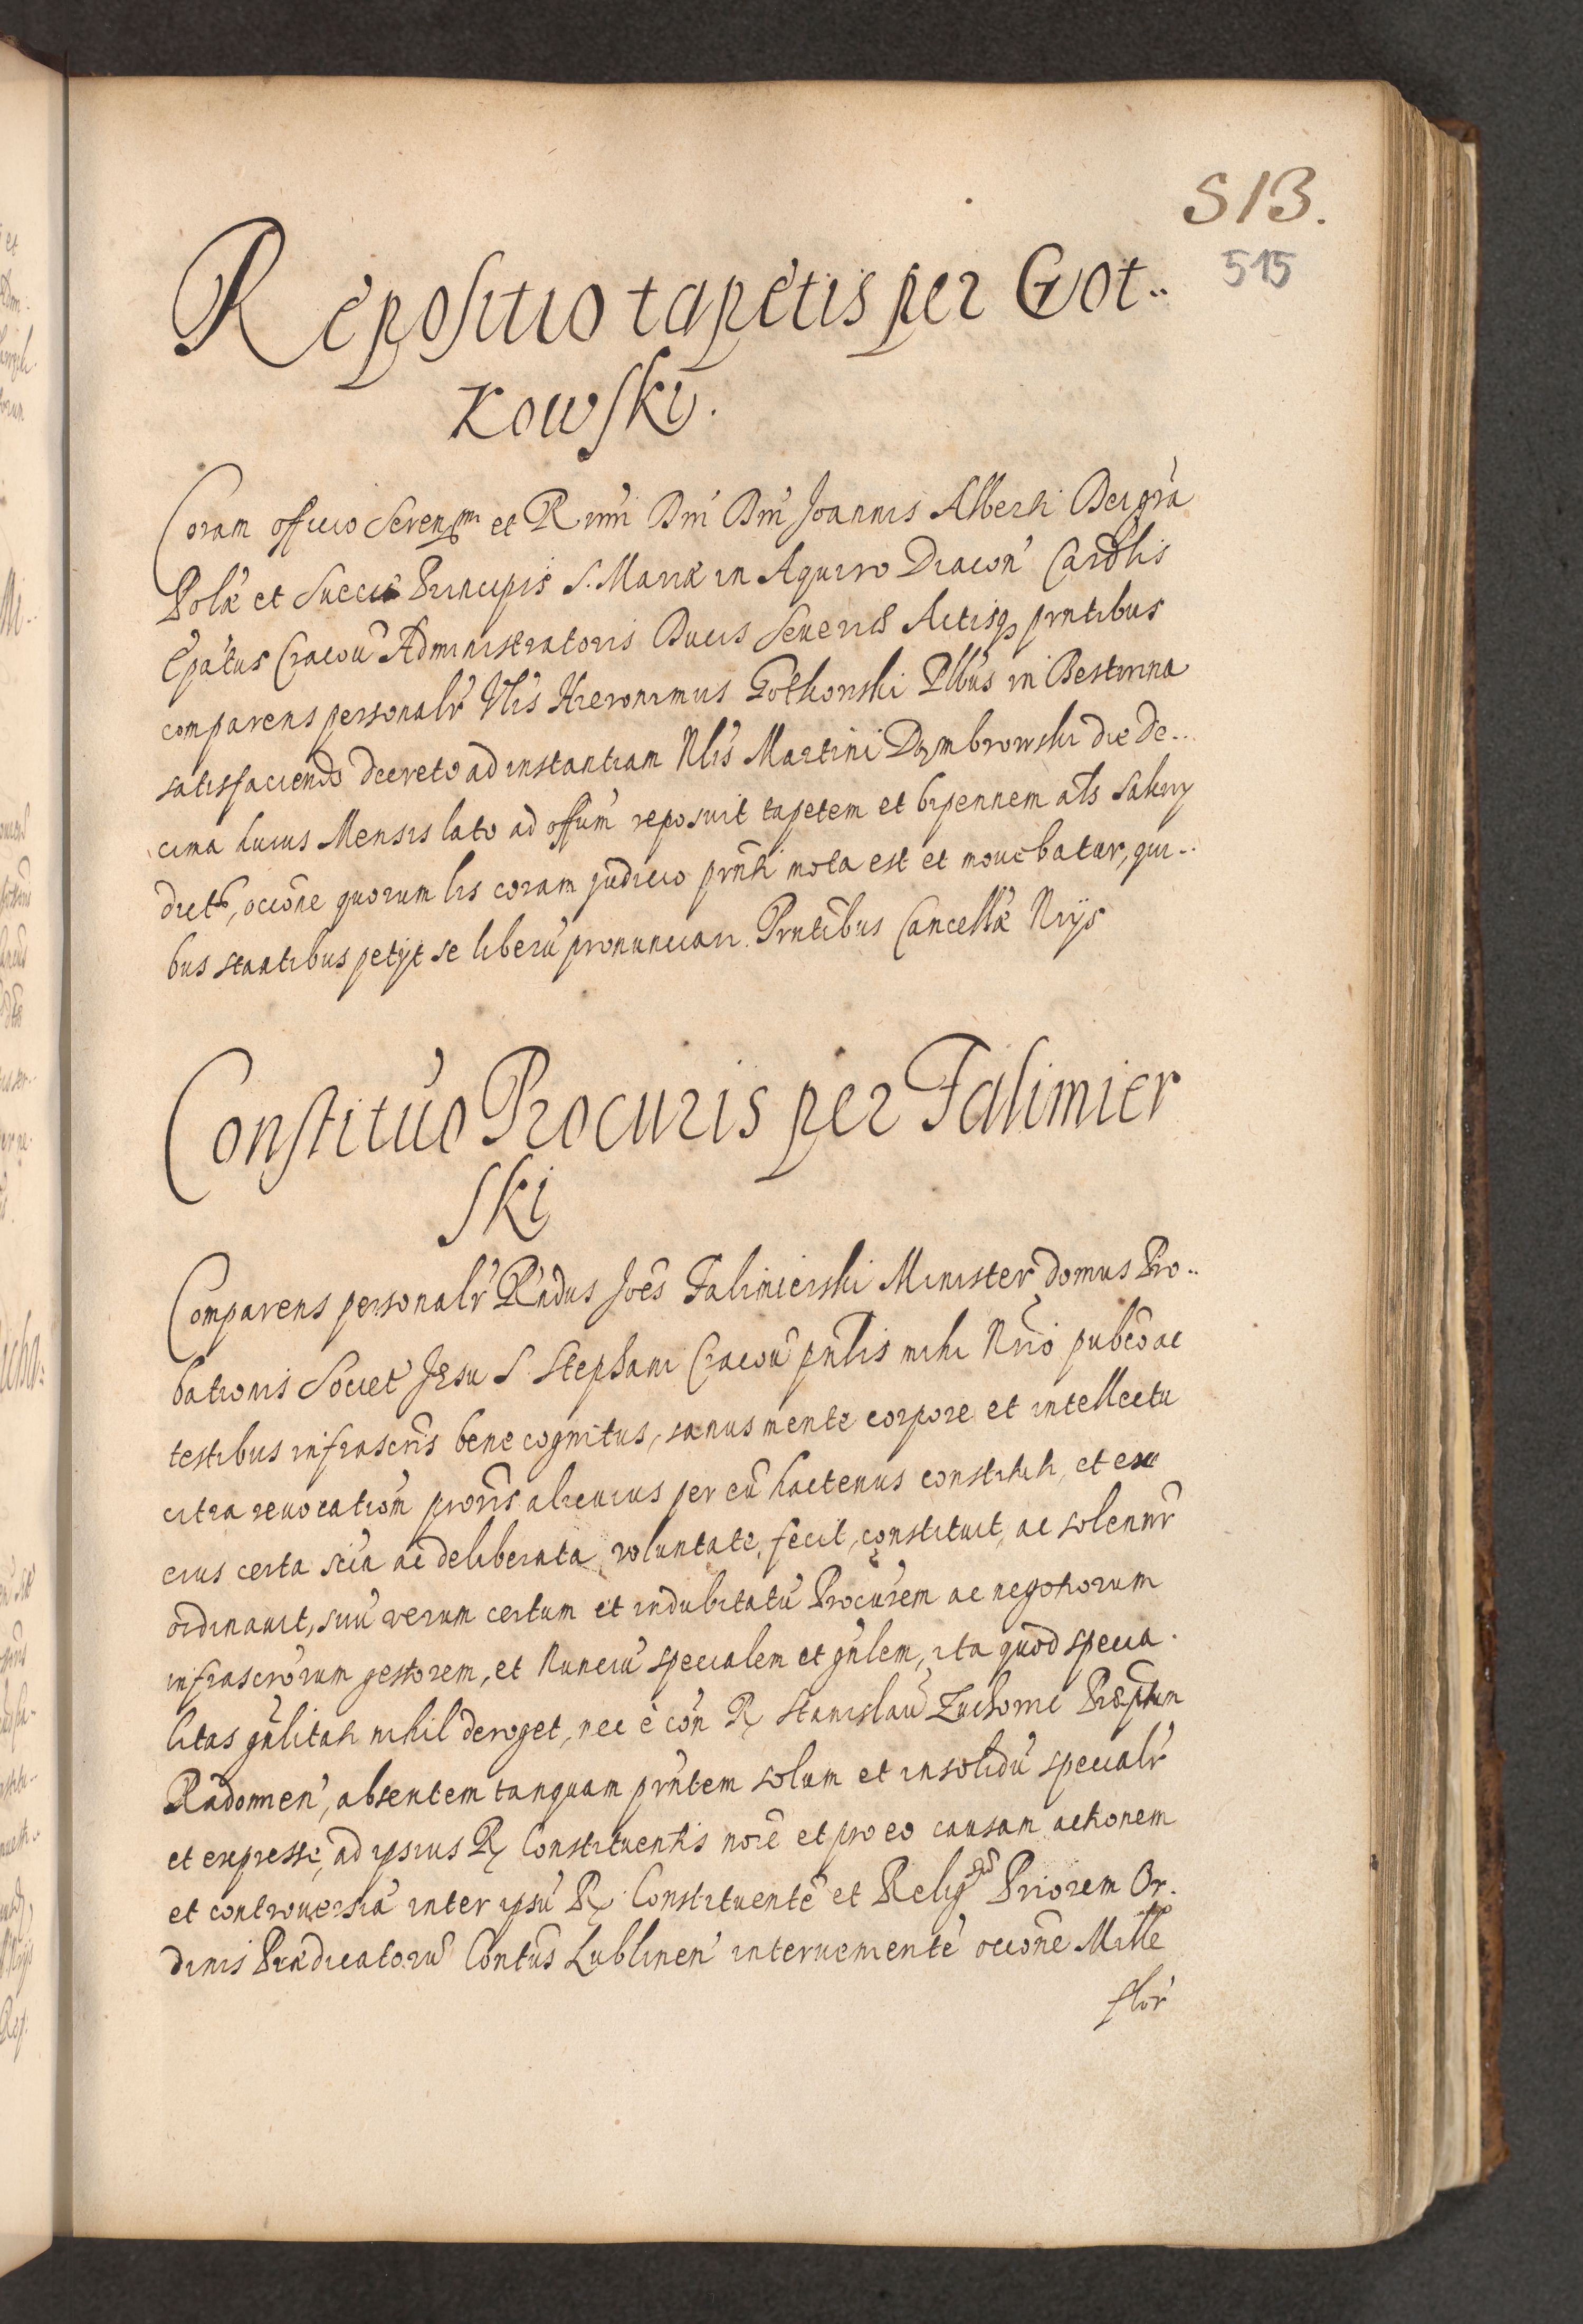 513.
515
Repositio tapetis per Got..
kowski.
Coram officio Serenissmi et Rmi Dni Dni Joannis Alberti Dei gra
Polæ et Sueciæ Principis S. Mariæ in Aquiro Diacon Cardlis
Epatus Cracou Administratoris Ducis Seueriæ Actisq prntibus
comparens personalr Nlis Hieronimus Gotkowski Plbus in Bestwina
satisfaciendo decreto ad instantiam Nlis Martini Dąmbrowski die de..
cima huius Mensis lato ad offum reposuit tapetem et bipennem als
dict, occone quorum lis coram judicio prnti mota est et mouebatur, qui..
bus stantibus petyt se liberu pronunciari. Prntibus Cancellæ Nrijs
Constituo Procuris per Falimier
ski
Comparens personalr Rndus Joes Falimierski Minister domus Pro..
bationis Societ Jesu S Stephani Cracou pntis mihi Nrio pubco ac
testibus infrascris bene cognitus, sanus mente corpore et intellectu
citra reuocation proris alicuius per eu hactenus constituti, et ex
eius certa scia ac deliberata voluntate, fecit, constituit, ac solennr
ordinauit, suu verum certum et indubitatu Procurem ac negotiorum
infrascrorum gestorem, et Nunciu specialem et gnlem, ita quod specia.
litas gnlitati nihil deroget, nec è con R Stanislau Præptum
Radomien, absentem tanquam prntem solum et insolidu specialr
et expresse, ad ipsius R Constituentis noie et pro eo causam actionem
et controuersia inter ipsu R Constituente et Relig Priorem Or.
dinis Prædicatoru Contus Lublinen interueniente occone Mille
flor